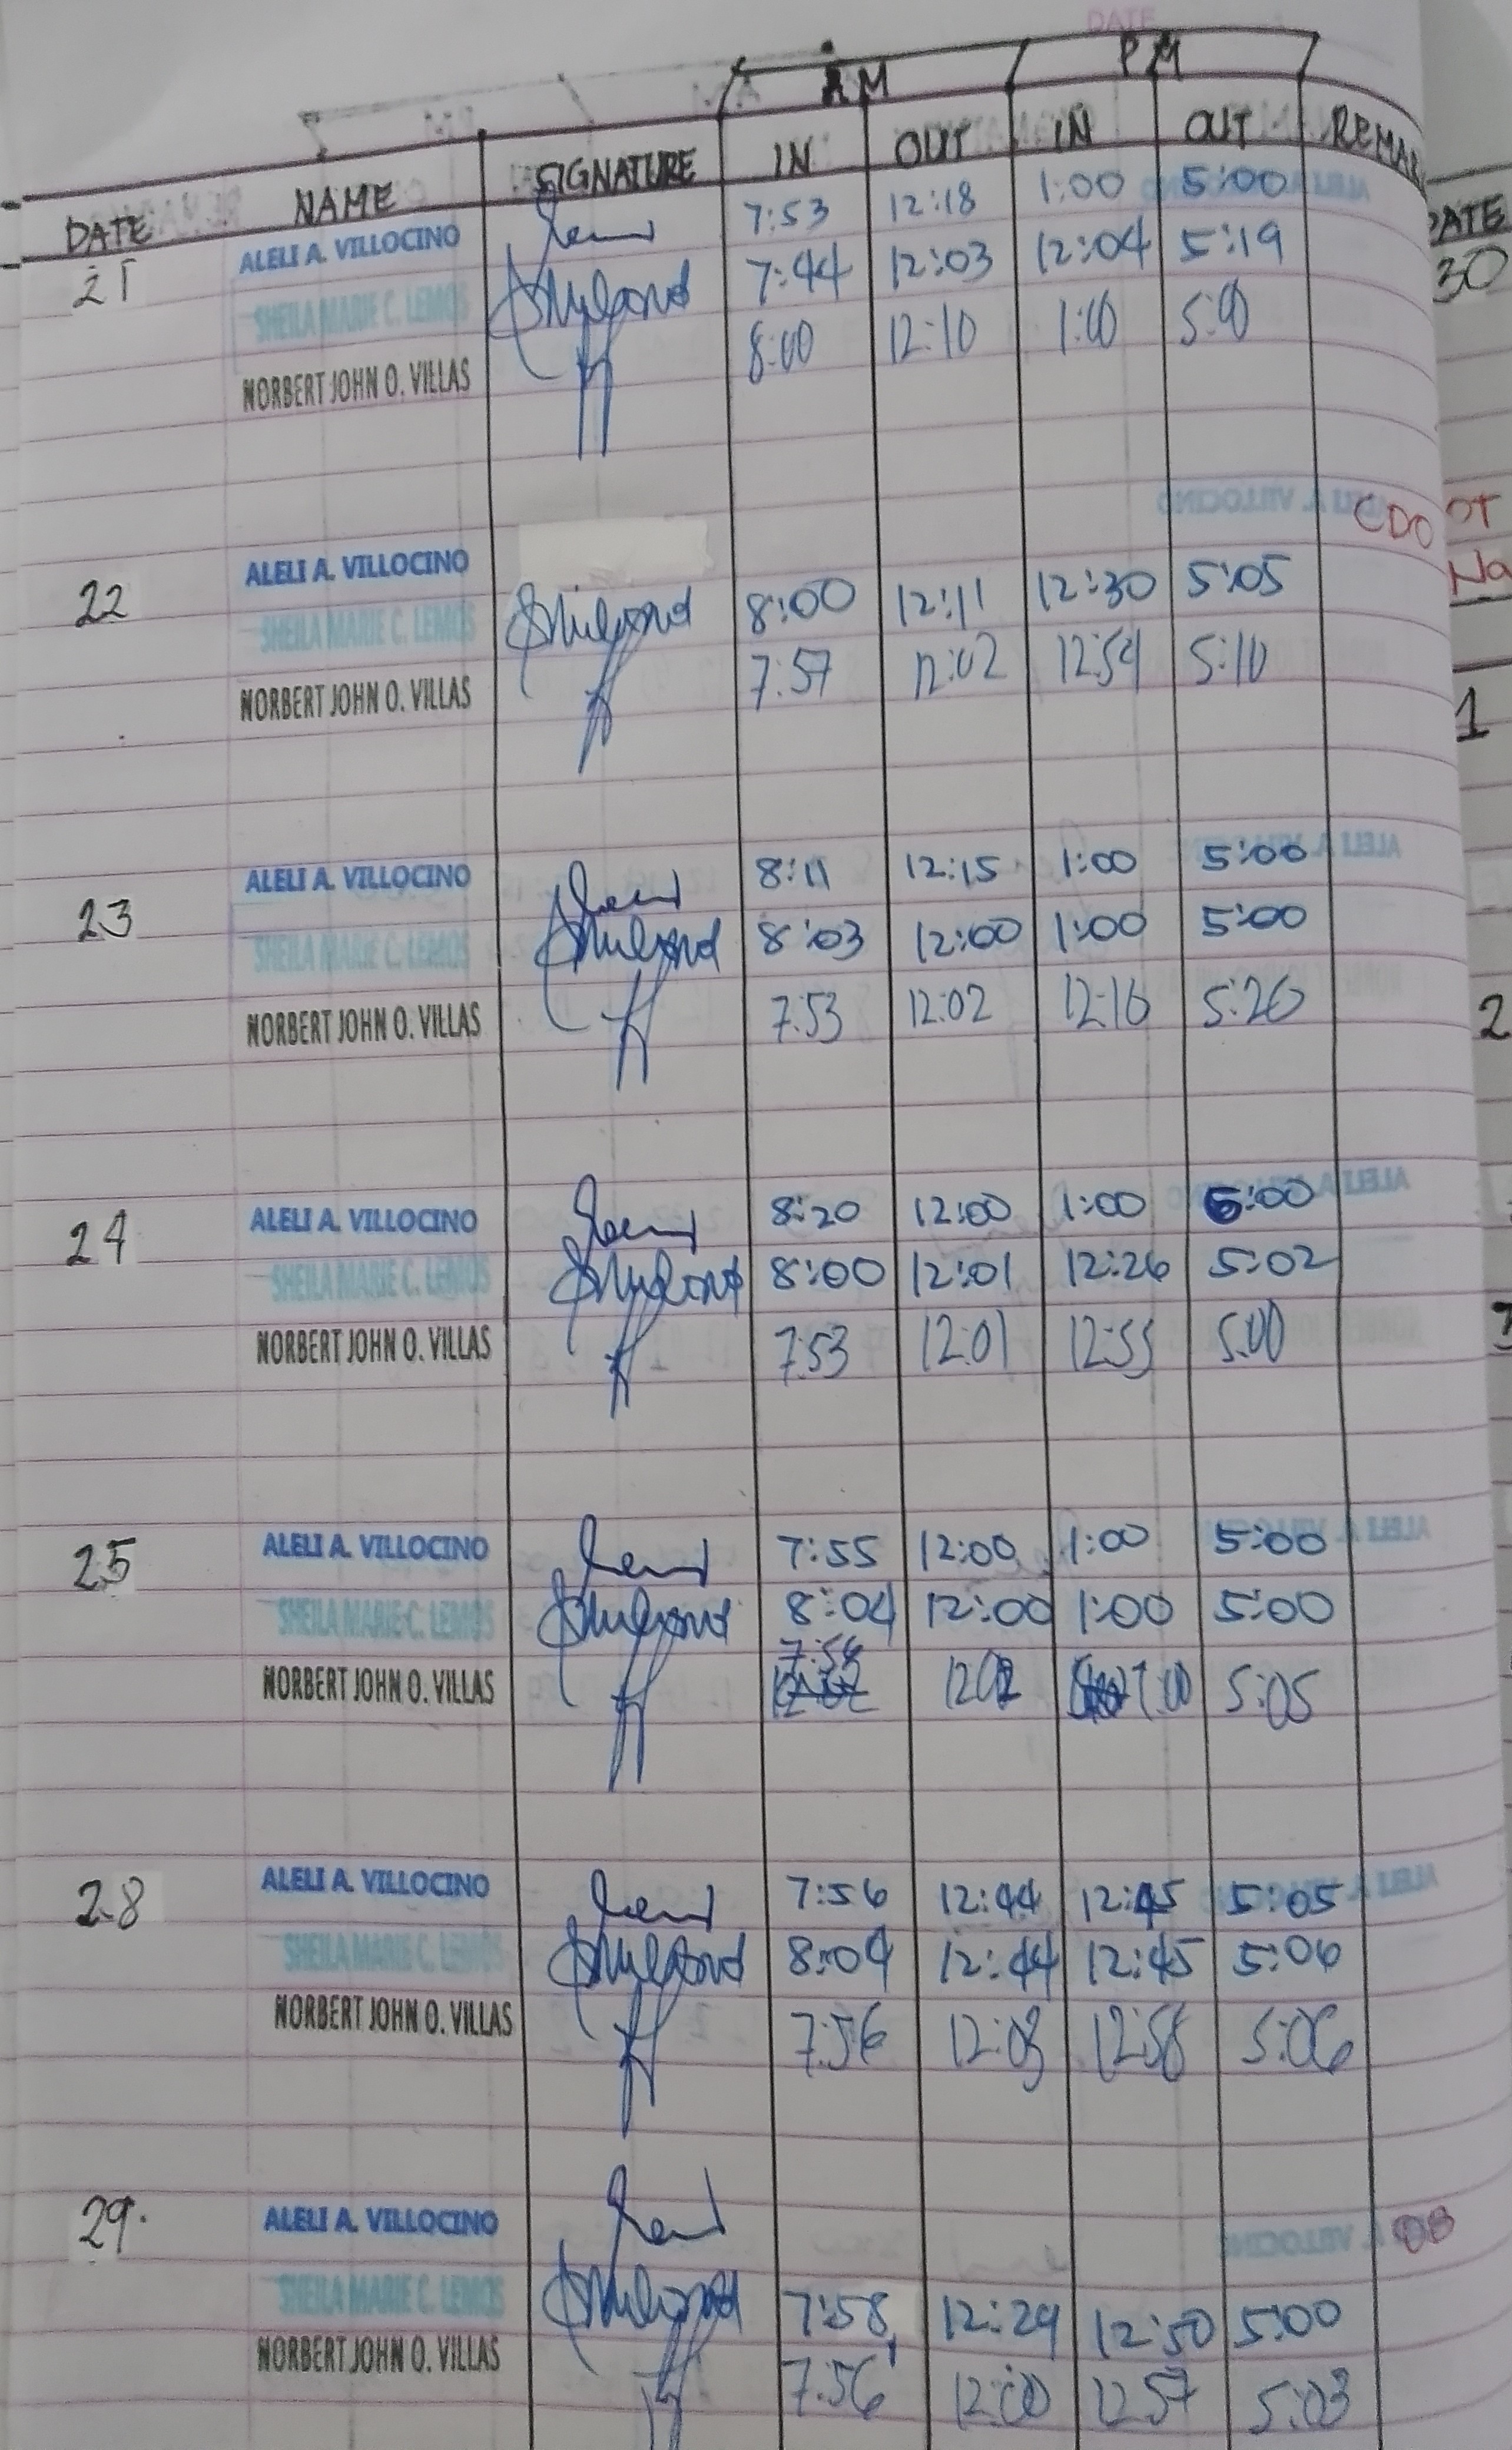 AM PM
DATE NAME SIGNATURE IN OUT IN OUT REMAR
21 ALELI A. VILLOCINO 7:53 12:18 1:00 5:00
SHEILA MARIE C. LEMOS 7:44 12:03 12:04 5:19
NORBERT JOHN O. VILLAS 8:00 12:10 1:00 5:00
22 ALELI A. VILLOCINO CDO
SHEILA MARIE C. LEMOS 8:00 12:11 12:30 5:05
NORBERT JOHN O. VILLAS 7:57 12:02 12:54 5:10
23 ALELI A. VILLOCINO 8:11 12:15 1:00 5:00
SHEILA MARIE C. LEMOS 8:03 12:00 1:00 5:00
NORBERT JOHN O. VILLAS 7:53 12:02 12:16 5:20
24 ALELI A. VILLOCINO 8:20 12:00 1:00 5:00
SHEILA MARIE C. LEMOS 8:00 12:01 12:26 5:02
NORBERT JOHN O. VILLAS 7:53 12:01 12:55 5:00
25 ALELI A. VILLOCINO 7:55 12:00 1:00 5:00
SHEILA MARIE C. LEMOS 8:04 12:00 1:00 5:00
NORBERT JOHN O. VILLAS 1202 1:00 5:05
28 ALELI A. VILLOCINO 7:56 12:44 12:45 5:05
SHEILA MARIE C. LEMOS 8:04 12:44 12:45 5:06
NORBERT JOHN O. VILLAS 7:56 12:03 12:58 5:06
29. ALELI A. VILLOCINO OB
SHEILA MARIE C. LEMOS 7:58 12:29 12:30 5:00
NORBERT JOHN O. VILLAS 7:56 12:00 1257 5:03
DATE
30
OT
Na
1
2